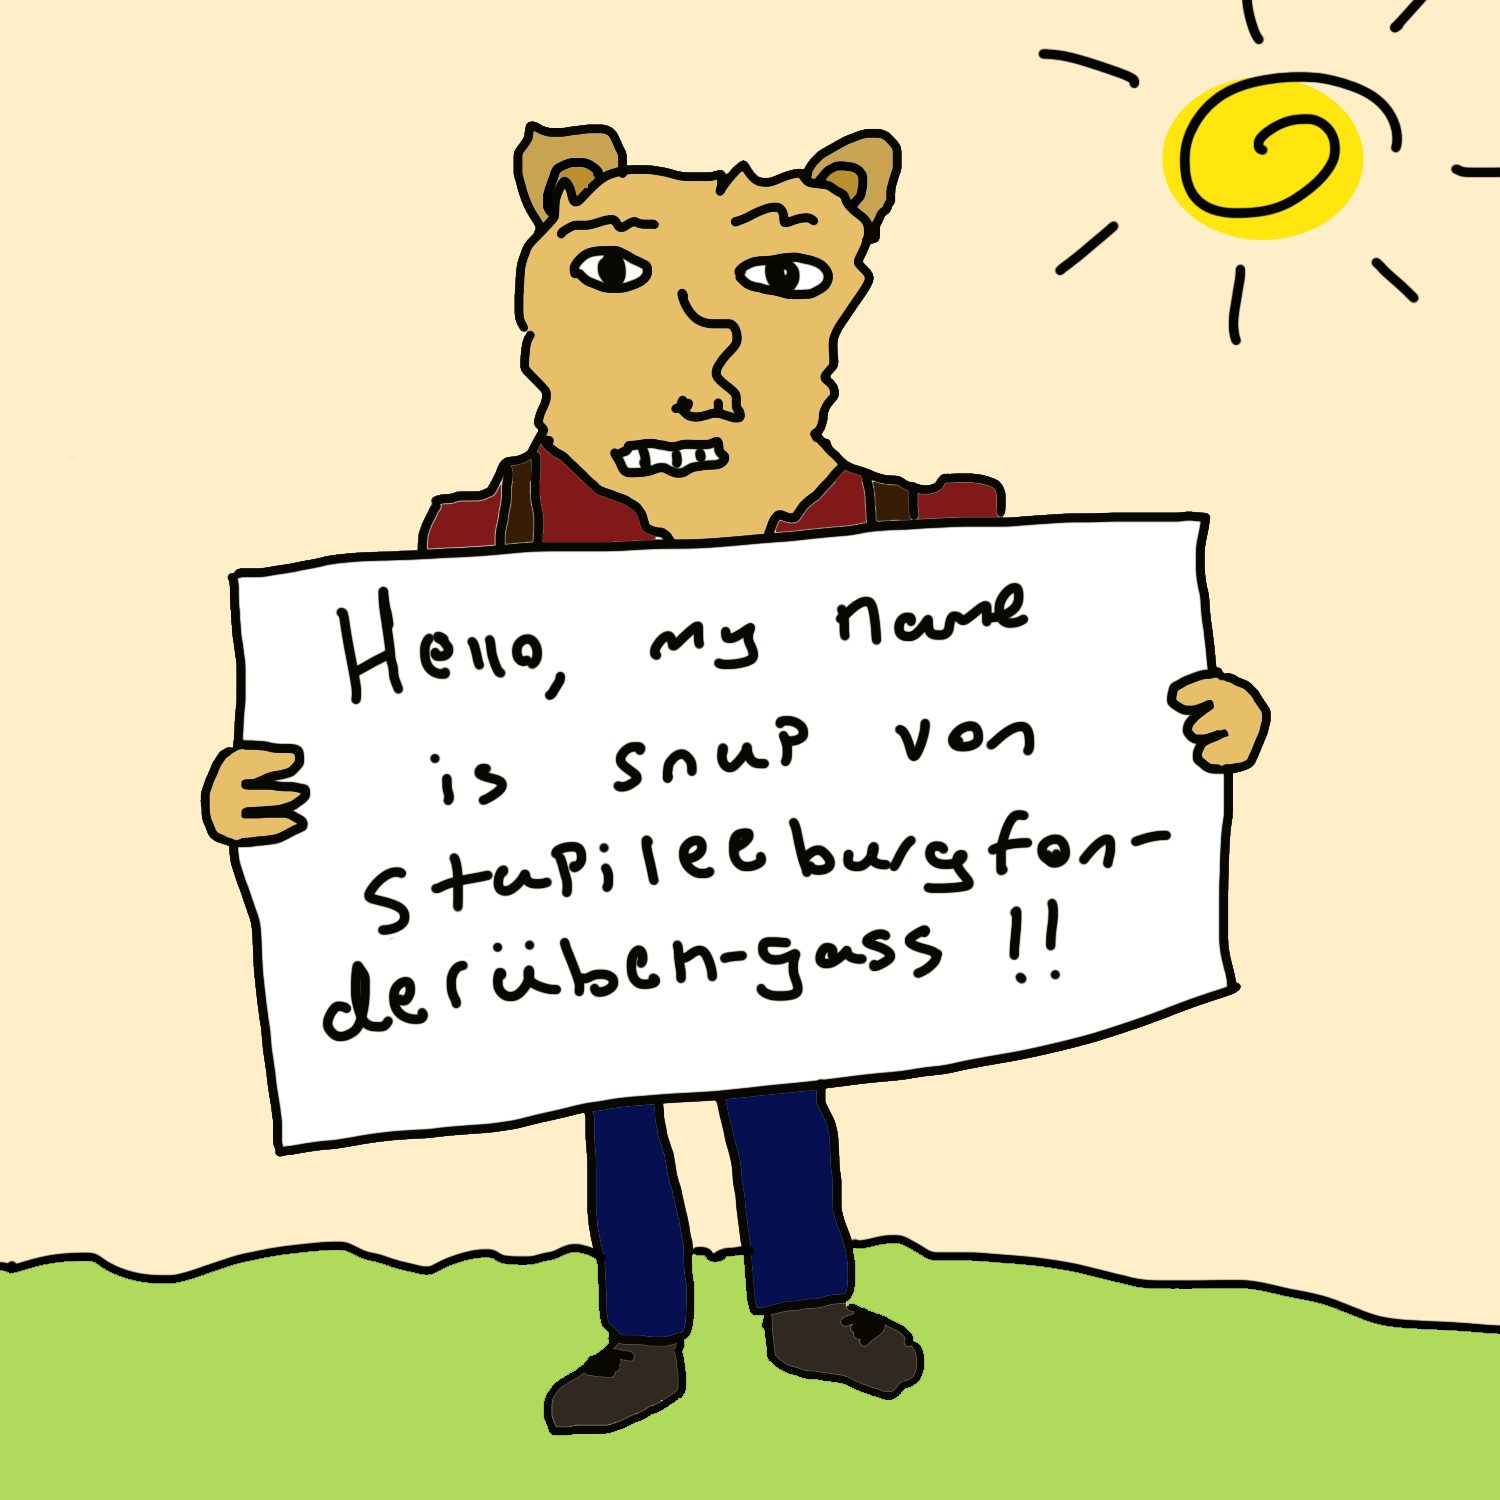 Hello, my name
is snup von
stapileeburgfon-
derüben-gass !!